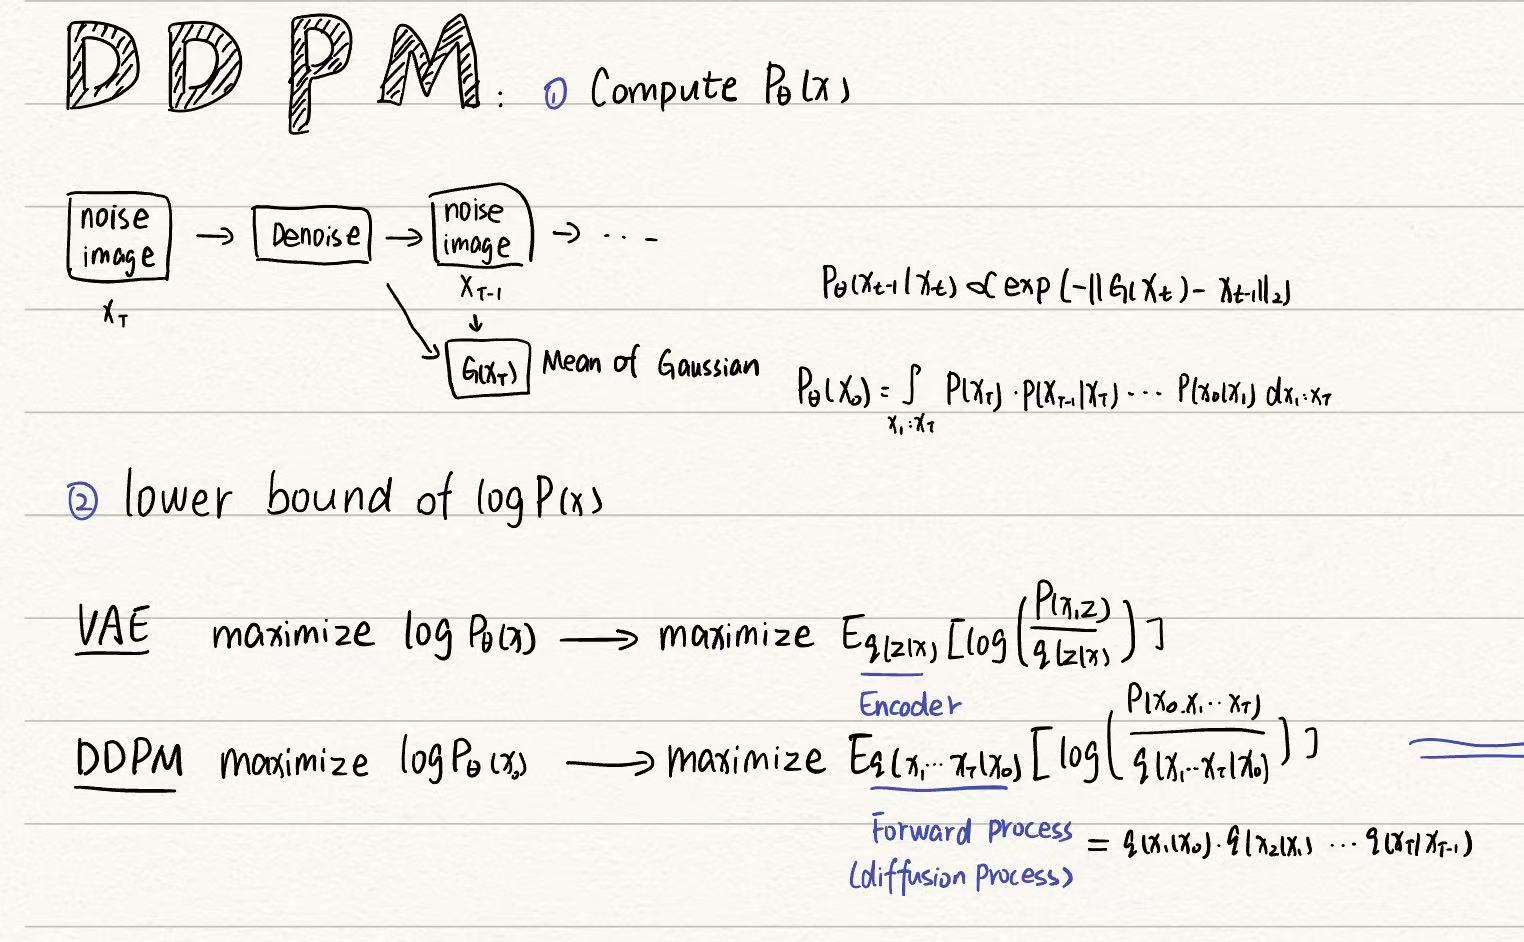 DDPM: ① Compute Pθ(x)
noise image → Denoise → noise image → ...
x_T
x_{T-1}
↓
G(x_T) Mean of Gaussian
Pθ(x_{t-1}|x_t) ∝ exp(-||G(x_t) - x_{t-1}||_2)
Pθ(x_0) = ∫_{x_1:x_T} P(x_T)·P(x_{T-1}|x_T) ··· P(x_0|x_1) dx_1:x_T
② lower bound of log P(x)
VAE maximize log Pθ(x) → maximize E_{q(z|x)} [log(P(x,z)/q(z|x))]
Encoder
DDPM maximize log Pθ(x_0) → maximize E_{q(x_1···x_T|x_0)} [log(P(x_0.x_1··x_T)/q(x_1··x_T|x_0))]
Forward process = q(x_1|x_0)·q(x_2|x_1) ··· q(x_T|x_{T-1})
(diffusion Process)